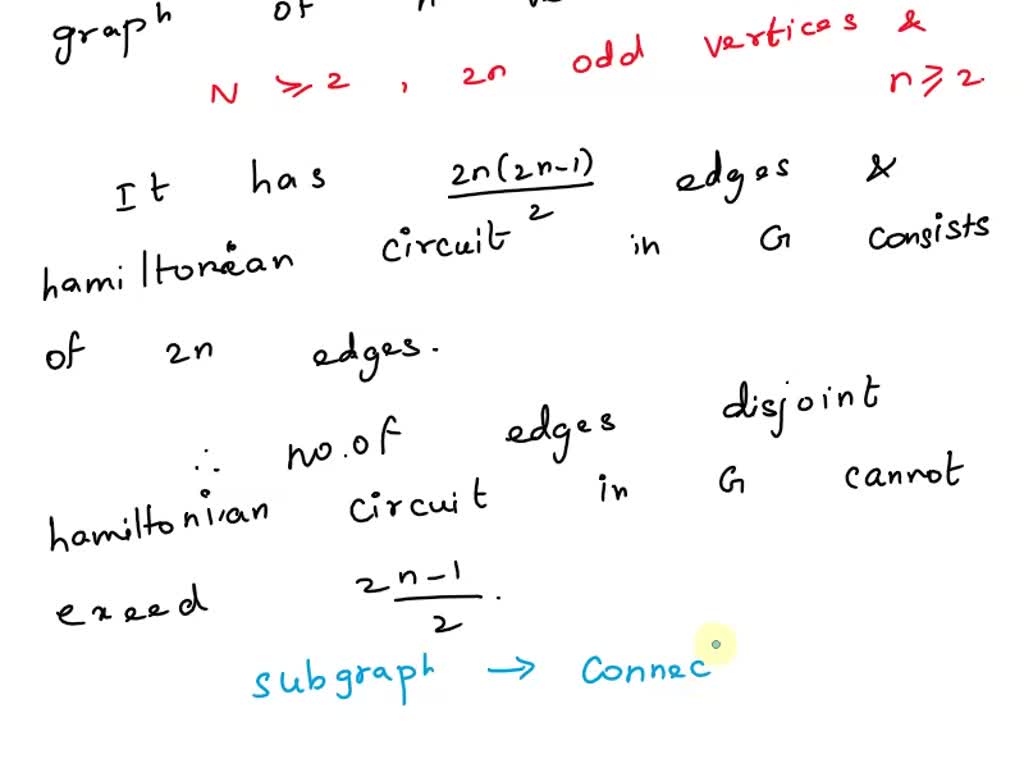 graph of n
N ≥ 2 , 2n odd vertices &
n ≥ 2.
It has 2n(2n-1)/2 edges &
hamiltonian circuit in G consists
of 2n edges.
∴ no.of edges disjoint
hamiltonian circuit in G cannot
exeed 2n-1/2.
subgraph → Connec